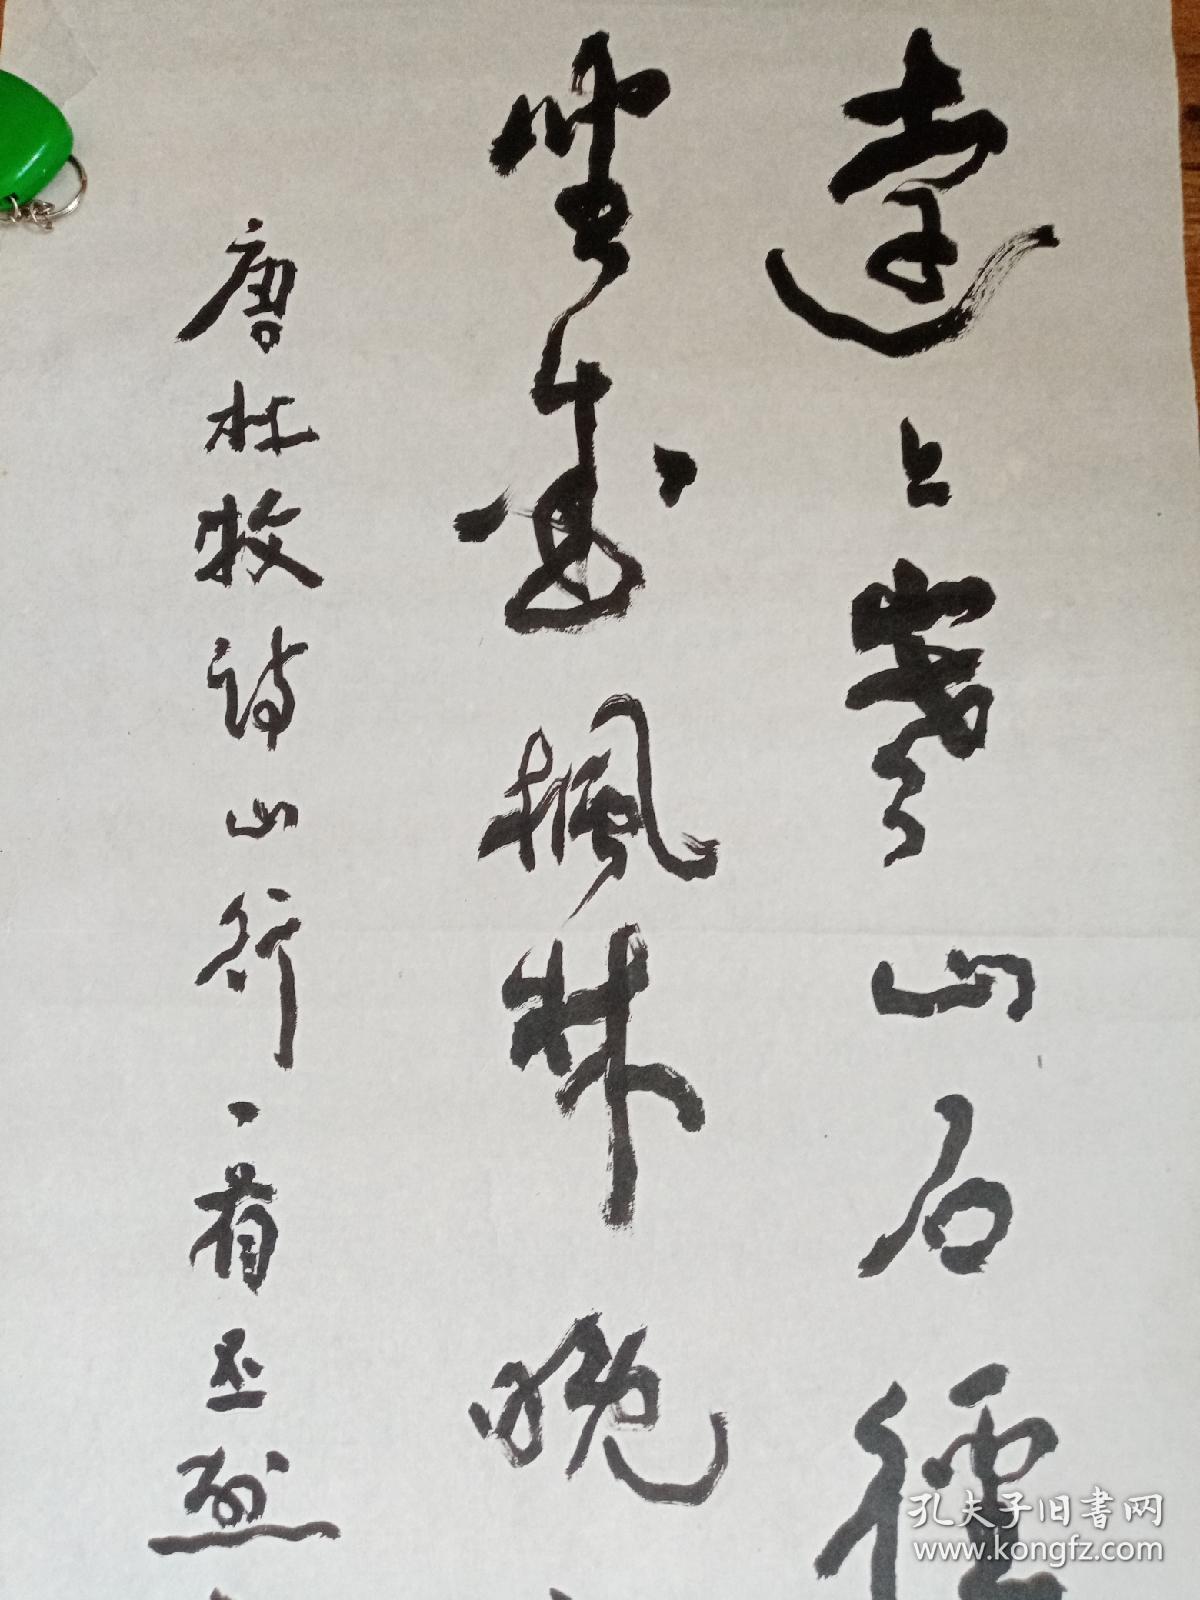 遠上寒山石徑
坐愛楓林晚
唐杜牧詩山行一首丕烈
孔夫子旧书网
www.kongfz.com